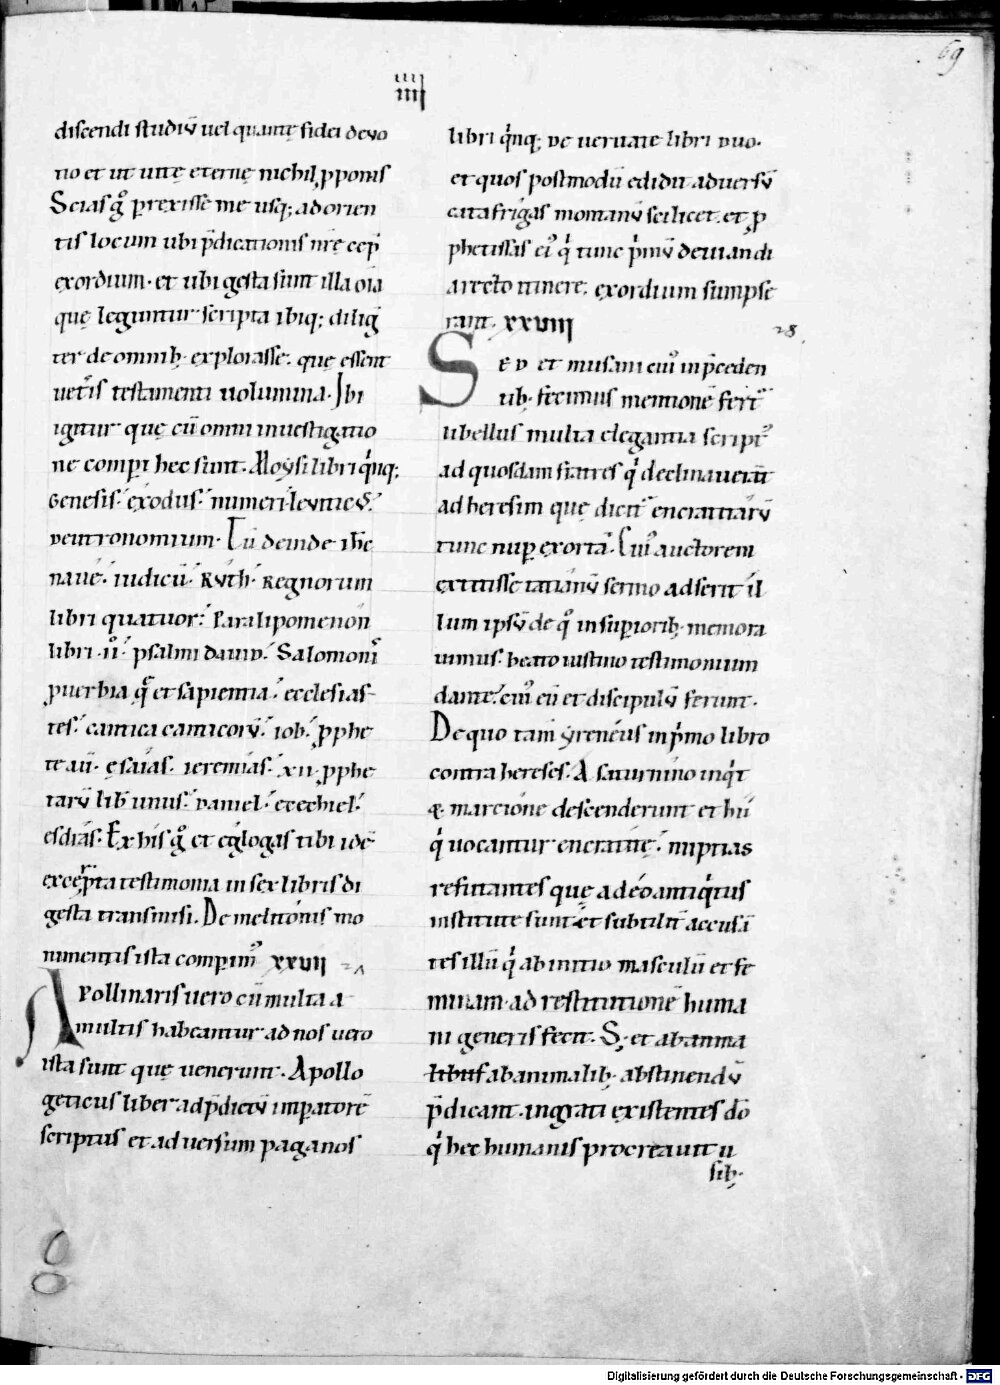 69
IIII
discendi studiū uel quantę fidei devo
tio et ut uitę eternę nichil p̱ponis
Scias gͦ p̱rexisse me usq; ad orien
tis locum ubi p̄dicationis nr̄e cep̄
exordium· et ubi gesta sunt illa om̄ia
quę leguntur scripta ibiq; diliḡ
ter de omnib; explorasse· quę essent
ueteris testamenti uolumina· Ibi
igitur quę cū omni inuestigatio
ne comp̱i hec sunt· Moysi libri qͥnq;
Genesis· exodus· numeri· leuitic᷒·
deutronomium· Tū deinde ih̄c
naue· iudicū· Ruth· Regnorum
libri quatuor· Paralipomenon
libri ·ii· psalmi dauid· Salomonis
ꝓuerbia q̄ et sapientia· ecclesias-
tes· cantica canticorū· iob· ꝓphe
te aū· ęsaias· ieremias· xii ꝓphe
tarū lib̄ unus· daniel· ezechiel·
esdras· Ex his gͦ et eglogas tibi idē
excerpta testimonia in sex libris di
gesta transmisi· De melitonis mo
numentis ista comperim᷒ xxvii 27
Apollinaris uero cū multa a
multis habeantur ad nos uero
ista sunt quę uenerunt· Apollo
geticus liber ad p̄dictū imp̱atorē
scriptus et aduersum paganos
libri qͥnq; de ueritate libri duo·
et quos postmodū edidit aduersū
catafrigas momanū scilicet· et ꝓ
phetissas ei᷒ qͥ tunc pͥmū deuiandi
a recto itinere· exordium sumpse
runt· xxviii 28
Sed et musani cui᷒ in p̄ceden
tib; fecimus mentionē fert̄
libellus multa elegantia script᷒
ad quosdam fratres qͥ declinauerāt
ad heresim quę dicit̄ encratitarū
tunc nup̱ exorta· Cui᷒ auctorem
extitisse tatianū sermo adserit il
lum ipsū de qͦ in sup̱iorib; memora
uimus· beato iustino testimonium
dante· cui᷒ eū et discipulū ferunt·
De quo tam̄ yreneus in pͥmo libro
contra hereses· A saturnino inqͥt
& marcione descenderunt et hii
qͥ uocantur encratitę· nuptias
refutantes quę adeo antiqͥtus
institute sunt et subtilit̄ accusā
tes illū qͥ ab initio masculū et fe
minam· ad restitutionē huma
ni generis fecit· S; et ab anima
libus ab animalib; abstinendū
p̄dicant· ingrati existentes dō
qͥ hec humanis procreauit u
sib;
Digitalisierung gefördert durch die Deutsche Forschungsgemeinschaft - DFG